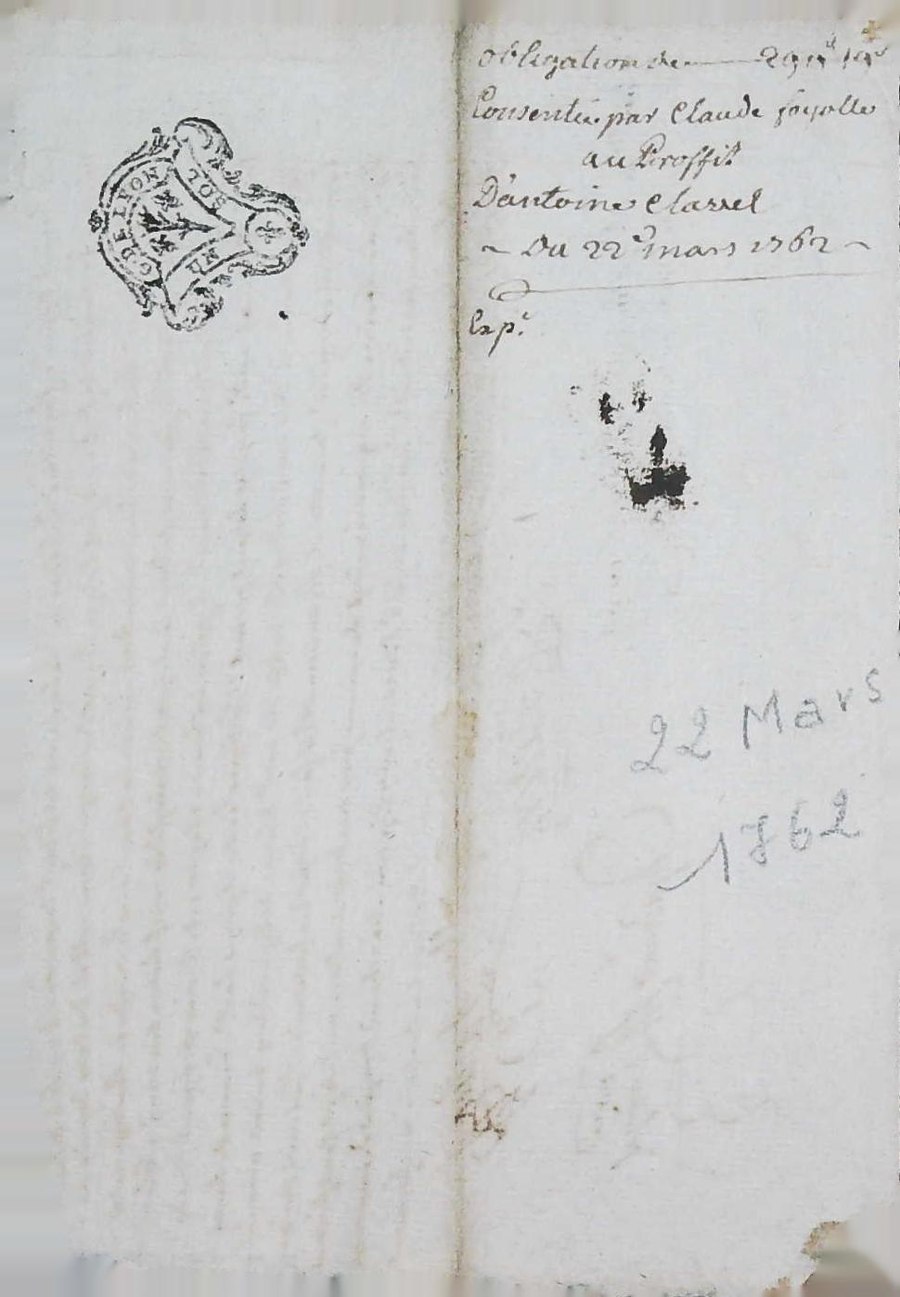 G. DE LYON
UN SOL
obligation de 29₶ 19s
Consentie par Claude fayolle
au Proffit
D'antoine Clavel
~ Du 22e mars 1762 ~
Exp.
22 Mars
1762